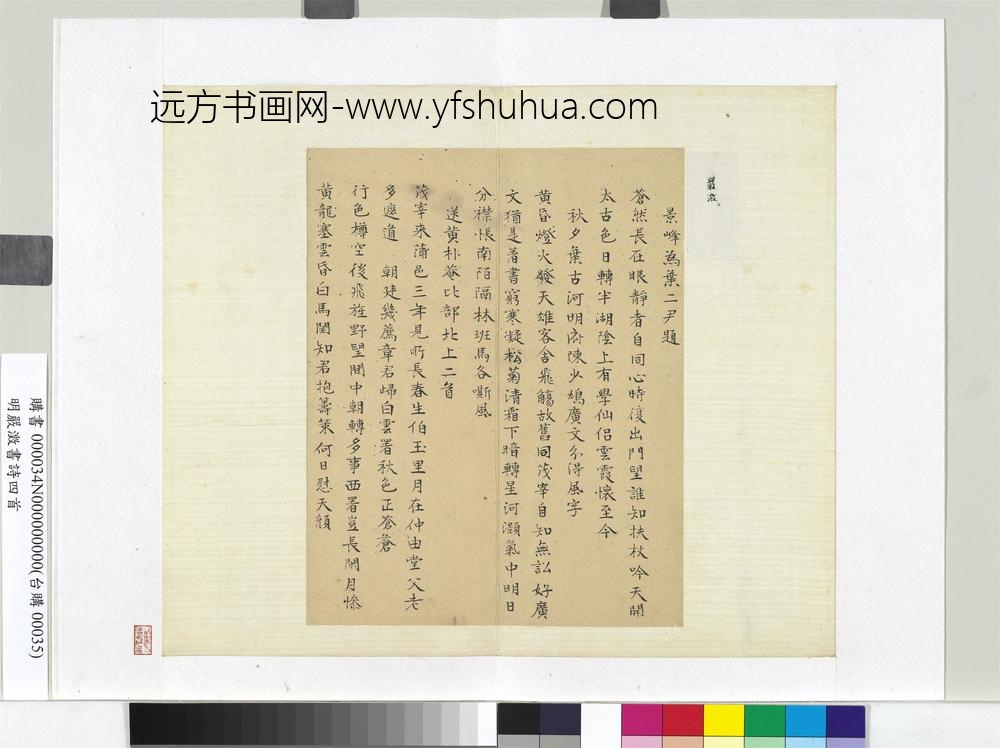 远方书画网-www.yfshuhua.com
嚴澂。
景峰為葉二尹題
蒼然長在眼靜者自同心時復出門望誰知扶杖吟天開
太古色日轉半湖陰上有學仙侶雲霞懷至今
秋夕葉古河明府陳少鳩廣文分得風字
黃昏燈火發天雄客舍飛觴故舊同茂宰自知無訟好廣
文猶是著書窮寒凝松菊清霜下暗轉星河灝氣中明日
分襟悵南陌隔林班馬各嘶風
送黃朴菴比部北上二首
茂宰來蒲邑三年見所長春生伯玉里月在仲由堂父老
多遮道 朝廷幾薦章君歸白雲署秋色正蒼蒼
行色樽空後飛旌野望間中朝轉多事西署豈長閑月慘
黃龍塞雲昏白馬關知君抱籌策何日慰天顏
購書 000034N000000000(台購 00035)
明嚴澂書詩四首